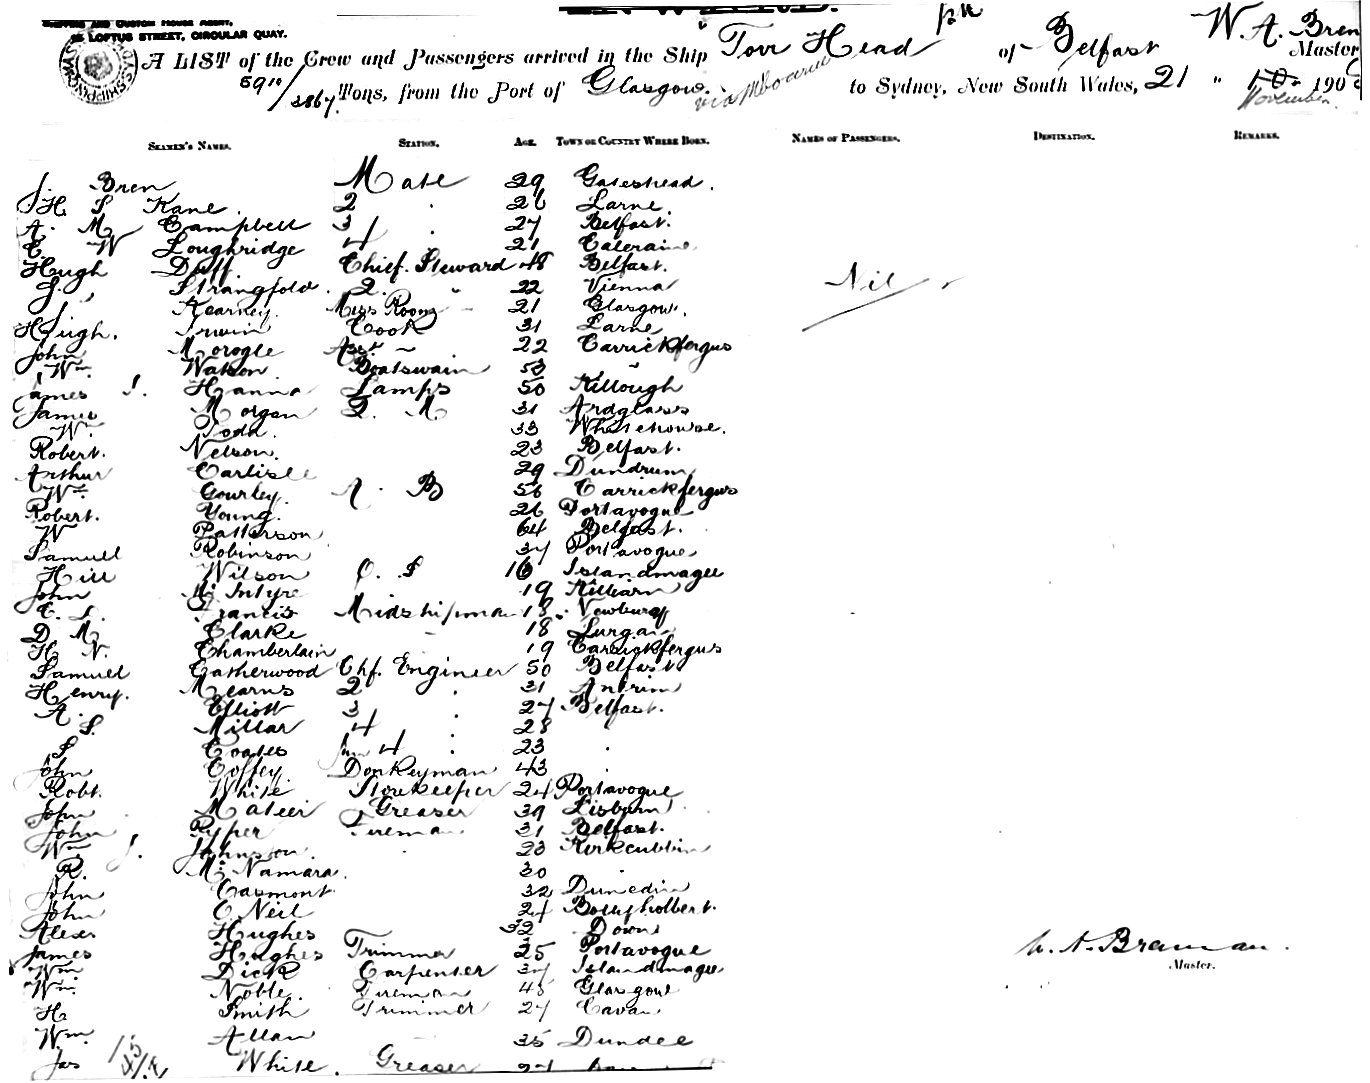 SHIPPING AND CUSTOM HOUSE AGENT,
LOFTUS STREET, CIRCULAR QUAY.
A LIST of the Crew and Passengers arrived in the Ship Torr Head of Belfast W. A. Bren Master
5910/3867 Tons, from the Port of Glasgow. via to Sydney, New South Wales, 21 " 10 190
November
SEAMEN'S NAMES. STATION. AGE. TOWN OR COUNTRY WHERE BORN. NAMES OF PASSENGERS. DESTINATION. REMARKS.
J. Bren Mate 29 Gateshead.
H S Kane. 2 . 26 Larne
A. M Campbell 3 . 27 Belfast.
C. W Loughridge 4 . 21 Coleraine
Hugh Duff. Chief. Steward 48 Belfast.
J. Strangfold. 2. " 22 Vienna Nil
J. Kearney. Mess Room 21 Glasgow.
Hugh. Irwin Cook 31 Larne
John Morogle Asst 22 Carrickfergus
Wm. Watson Boatswain 53 "
James J. Hanna Lamps 50 Killough
James Morgan Q. M 31 Ardglass
W. Todd. 33 Whitehouse.
Robert. Nelson. 23 Belfast.
Arthur Carlisle 29 Dundrum
Wm. Gourley. A. B 56 Carrickfergus
Robert. Young. 26 Portavogue
W Patterson 64 Belfast.
Samuel Robinson 37 Portavogue
Hill Wilson O. S 16 Islandmagee
John McIntyre 19 Killiarn
C. L. Francis Midshipman 18 Newburgh
D. M. Clarke 18 Lurgan
H N. Chamberlain 19 Carrickfergus
Samuel Catherwood Chf. Engineer 50 Belfast
Henry. Mearns 2 . 31 Antrim
A. Elliott 3 . 27 Belfast.
S. Millar 4 . 28 .
S Coates Jun 4 . 23 .
John Coffey. Donkeyman 43 .
Robt. White Storekeeper 24 Portavogue
John Mateer Greaser 39 Lisburn
John Pyper Fireman 31 Belfast.
Wm J. Johnston. 23 Kirkcubbin
R. McNamara. 30 .
John Casmont 32 Dunedin
John O'Neil 24 Ballyholbert.
Alexr Hughes 32 Down
James Hughes Trimmer 25 Portavogue W. A. Brennan.
Wm Dick Carpenter 37 Islandmagee Master.
Wm. Noble. Fireman 45 Glasgow
H. Smith Trimmer 27 Cavan
Wm. Allan 35 Dundee
Jas White. Greaser 27